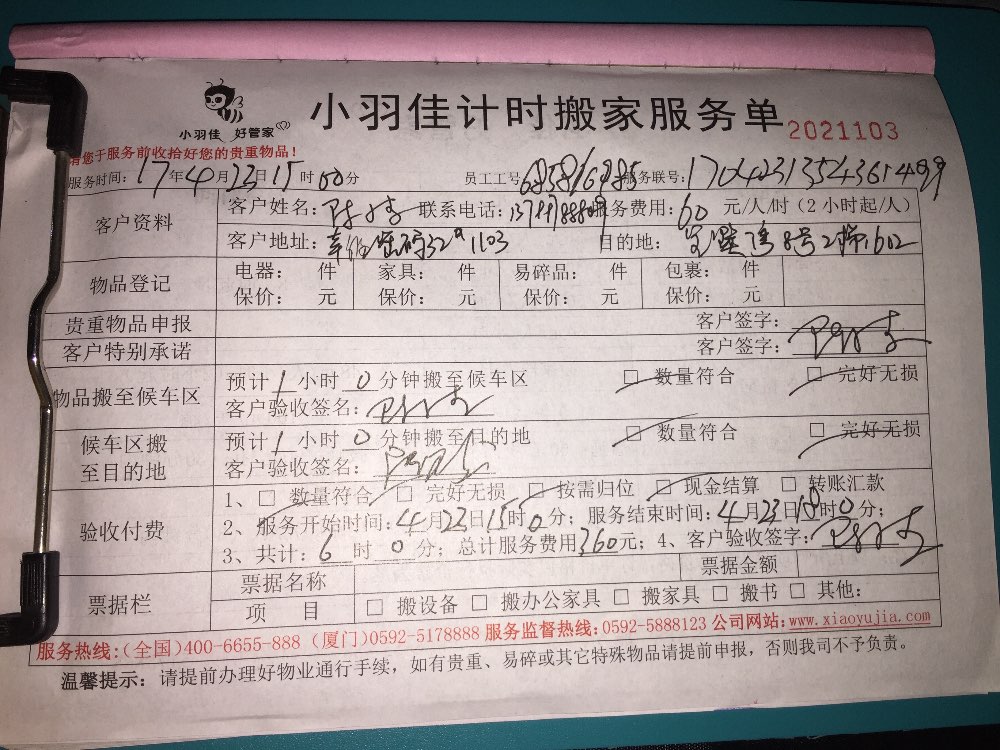 小羽佳 好管家
小羽佳计时搬家服务单 2021103
请您于服务前收拾好您的贵重物品！
服务时间：17年4月23日15时00分 员工工号： 服务联号：
客户资料 客户姓名： 联系电话： 服务费用：60元/人/时（2小时起/人）
客户地址： 1103 目的地： 8号2梯1602
物品登记 电器： 件 家具： 件 易碎品： 件 包裹： 件
保价： 元 保价： 元 保价： 元 保价： 元
贵重物品申报 客户签字：
客户特别承诺 客户签字：
物品搬至候车区 预计1小时0分钟搬至候车区 □ 数量符合 □ 完好无损
客户验收签名：
候车区搬至目的地 预计1小时0分钟搬至目的地 □ 数量符合 □ 完好无损
客户验收签名：
验收付费 1、□ 数量符合 □ 完好无损 □ 按需归位 □ 现金结算 □ 转账汇款
2、服务开始时间：4月23日15时0分；服务结束时间：4月23日18时0分；
3、共计：6时0分；总计服务费用360元；4、客户验收签字：
票据栏 票据名称 票据金额
项目 □ 搬设备 □ 搬办公家具 □ 搬家具 □ 搬书 □ 其他：
服务热线：（全国）400-6655-888（厦门）0592-5178888 服务监督热线：0592-5888123 公司网站：www.xiaoyujia.com
温馨提示：请提前办理好物业通行手续，如有贵重、易碎或其它特殊物品请提前申报，否则我司不予负责。